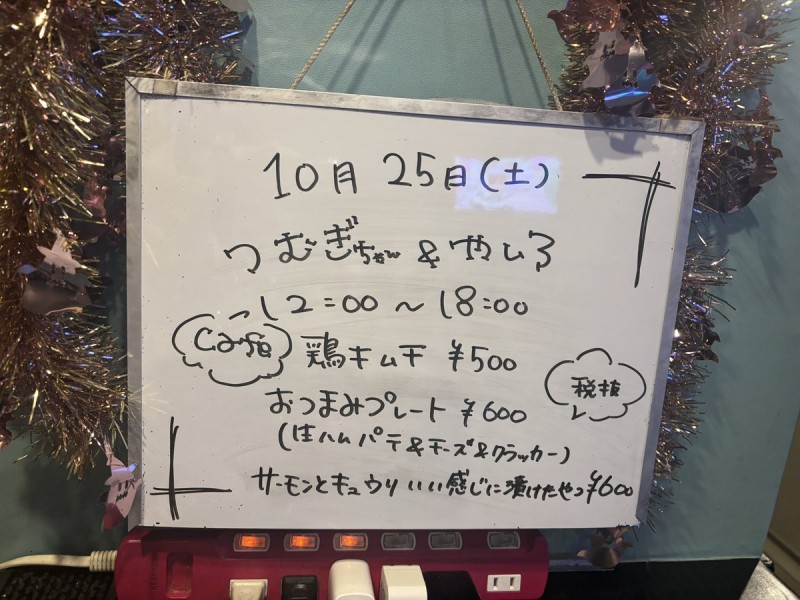 10月 25日(土)
つむぎちゃん & やひろ
12:00 ~ 18:00
Cafe
鶏キムチ ¥500
税抜
おつまみプレート ¥600
(生ハムパテ&チーズ&クラッカー)
サーモンとキュウリ いい感じに漬けたやつ ¥600